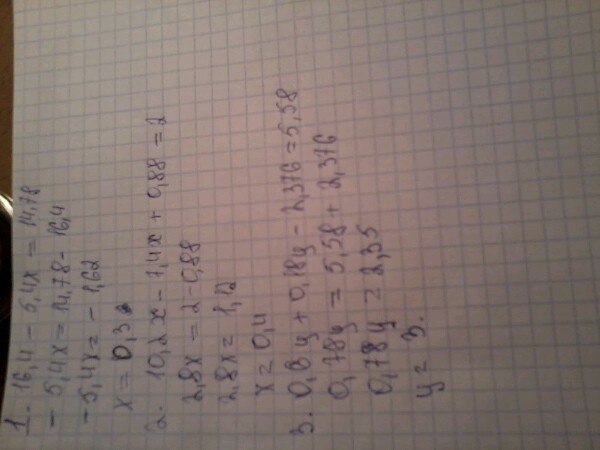 1. 16,4 - 5,4x = 14,78
- 5,4x = 14,78 - 16,4
- 5,4x = - 1,62
x = 0,3
2. 10,2x - 7,4x + 0,88 = 2
2,8x = 2 - 0,88
2,8x = 1,12
x = 0,4
3. 0,6y + 0,18y - 2,376 = 5,58
0,78y = 5,58 + 2,376
0,78y = 2,35
y = 3.